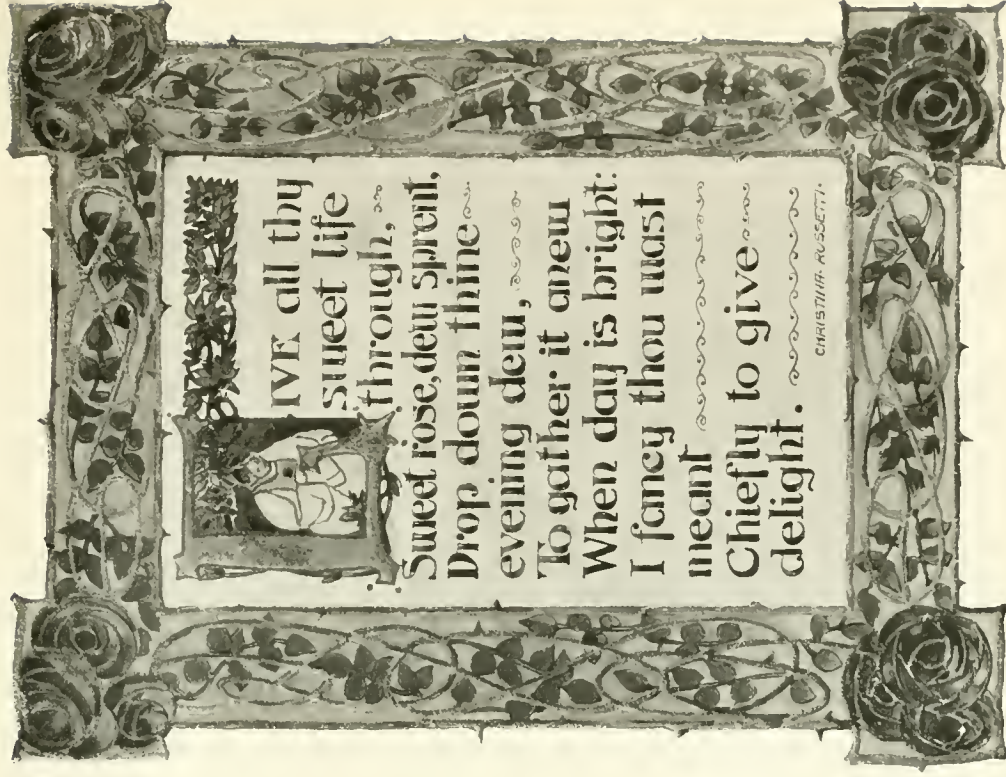 LIVE all thy
sweet life
through,
Sweet rose, dew sprent,
Drop down thine
evening dew,
To gather it anew
When day is bright:
I fancy thou wast
meant
Chiefly to give
delight.
CHRISTINA·ROSSETTI·